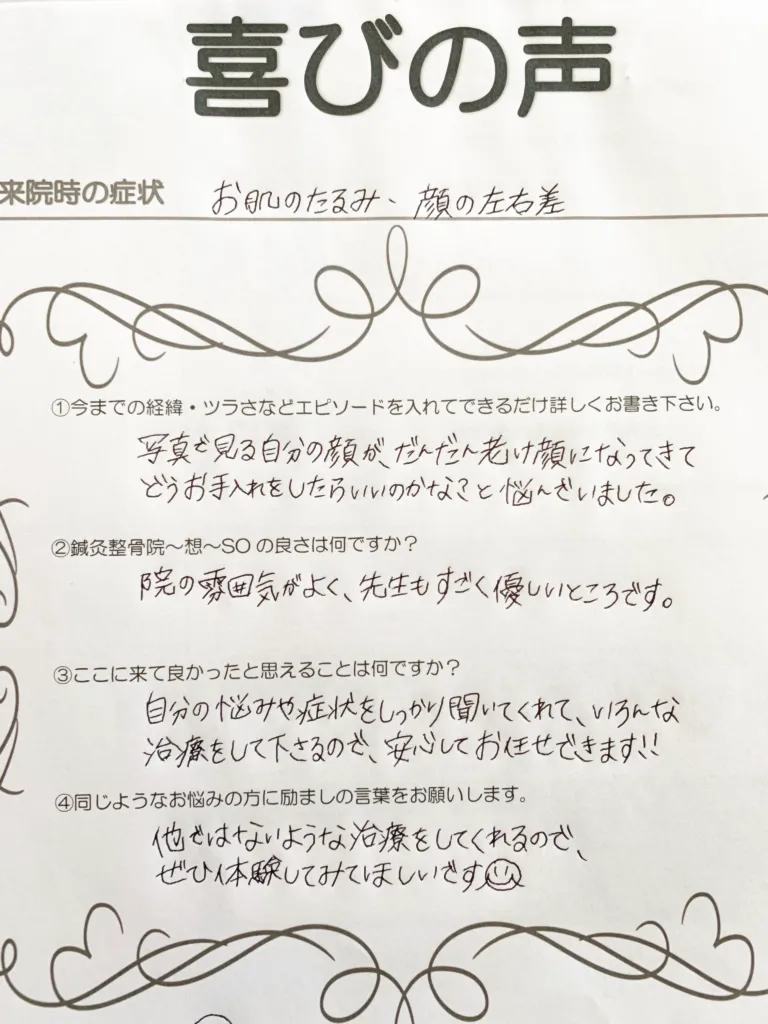 喜びの声
来院時の症状 お肌のたるみ、顔の左右差
①今までの経緯・ツラさなどエピソードを入れてできるだけ詳しくお書き下さい。
写真で見る自分の顔が、だんだん老け顔になってきて
どうお手入れをしたらいいのかな?と悩んでいました。
②鍼灸整骨院～想～SOの良さは何ですか?
院の雰囲気がよく、先生もすごく優しいところです。
③ここに来て良かったと思えることは何ですか?
自分の悩みや症状をしっかり聞いてくれて、いろんな
治療をして下さるので、安心してお任せできます!!
④同じようなお悩みの方に励ましの言葉をお願いします。
他ではないような治療をしてくれるので、
ぜひ体験してみてほしいです☺